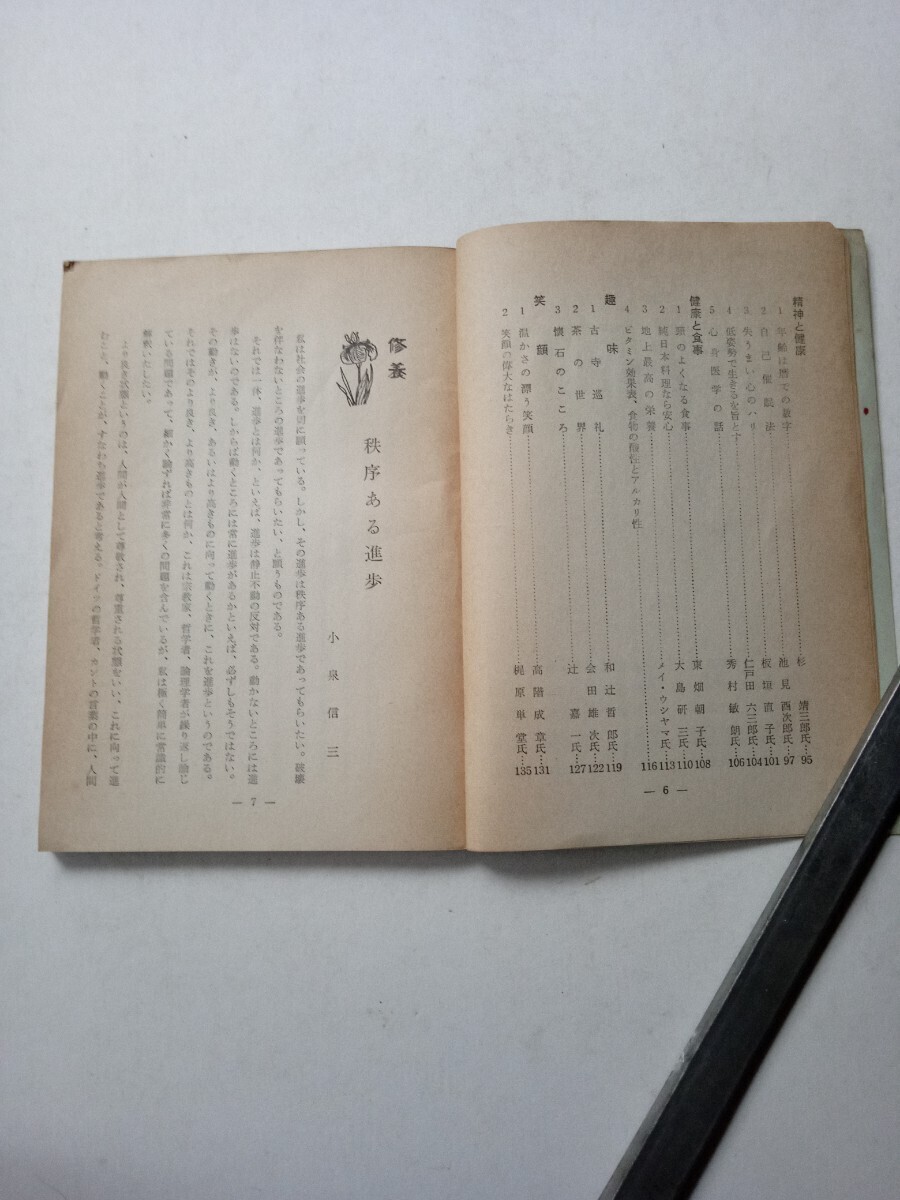 精神と健康
1 年齢は暦での数字……杉 靖三郎氏…95
2 自己催眠法……池見 酉次郎氏…97
3 失うまい心のハリ……板垣 直子氏…101
4 低姿勢で生きるを旨とす……仁戸田 六三郎氏…104
5 心身医学の話……秀村 敏朗氏…106
健康と食事
1 頭のよくなる食事……東畑 朝子氏…108
2 純日本料理なら安心……大島 研三氏…110
3 地上最高の栄養……メイ・ウシヤマ氏…113
4 ビタミン効果表、食物の酸性とアルカリ性……116
趣味
1 古寺巡礼……和辻 哲郎氏…119
2 茶の世界……会田 雄次氏…122
3 懐石のこころ……辻 嘉一氏…127
笑顔
1 温かさの漂う笑顔……高階 成章氏…131
2 笑顔の偉大なはたらき……梶原 単堂氏…135
― 6 ―
修養
秩序ある進歩
小泉信三
私は社会の進歩を切に願っている。しかし、その進歩は秩序ある進歩であってもらいたい。破壊
を伴なわないところの進歩であってもらいたい、と願うものである。
それでは一体、進歩とは何か、といえば、進歩は静止不動の反対である。動かないところには進
歩はないのである。しからば動くところには常に進歩があるかといえば、必ずしもそうではない。
その動きが、より良き、あるいはより高きものに向って動くときに、これを進歩というのである。
それではそのより良き、より高きものとは何か、これは宗教家、哲学者、論理学者が繰り返し論じ
ている問題であって、細かく論ずれば非常に多くの問題を含んでいるが、私は極く簡単に常識的に
解釈いたしたい。
より良き状態というのは、人間が人間として尊敬され、尊重される状態をいい、これに向って進
むこと、動くことが、すなわち進歩であると考える。ドイツの哲学者、カントの言葉の中に、人間
― 7 ―